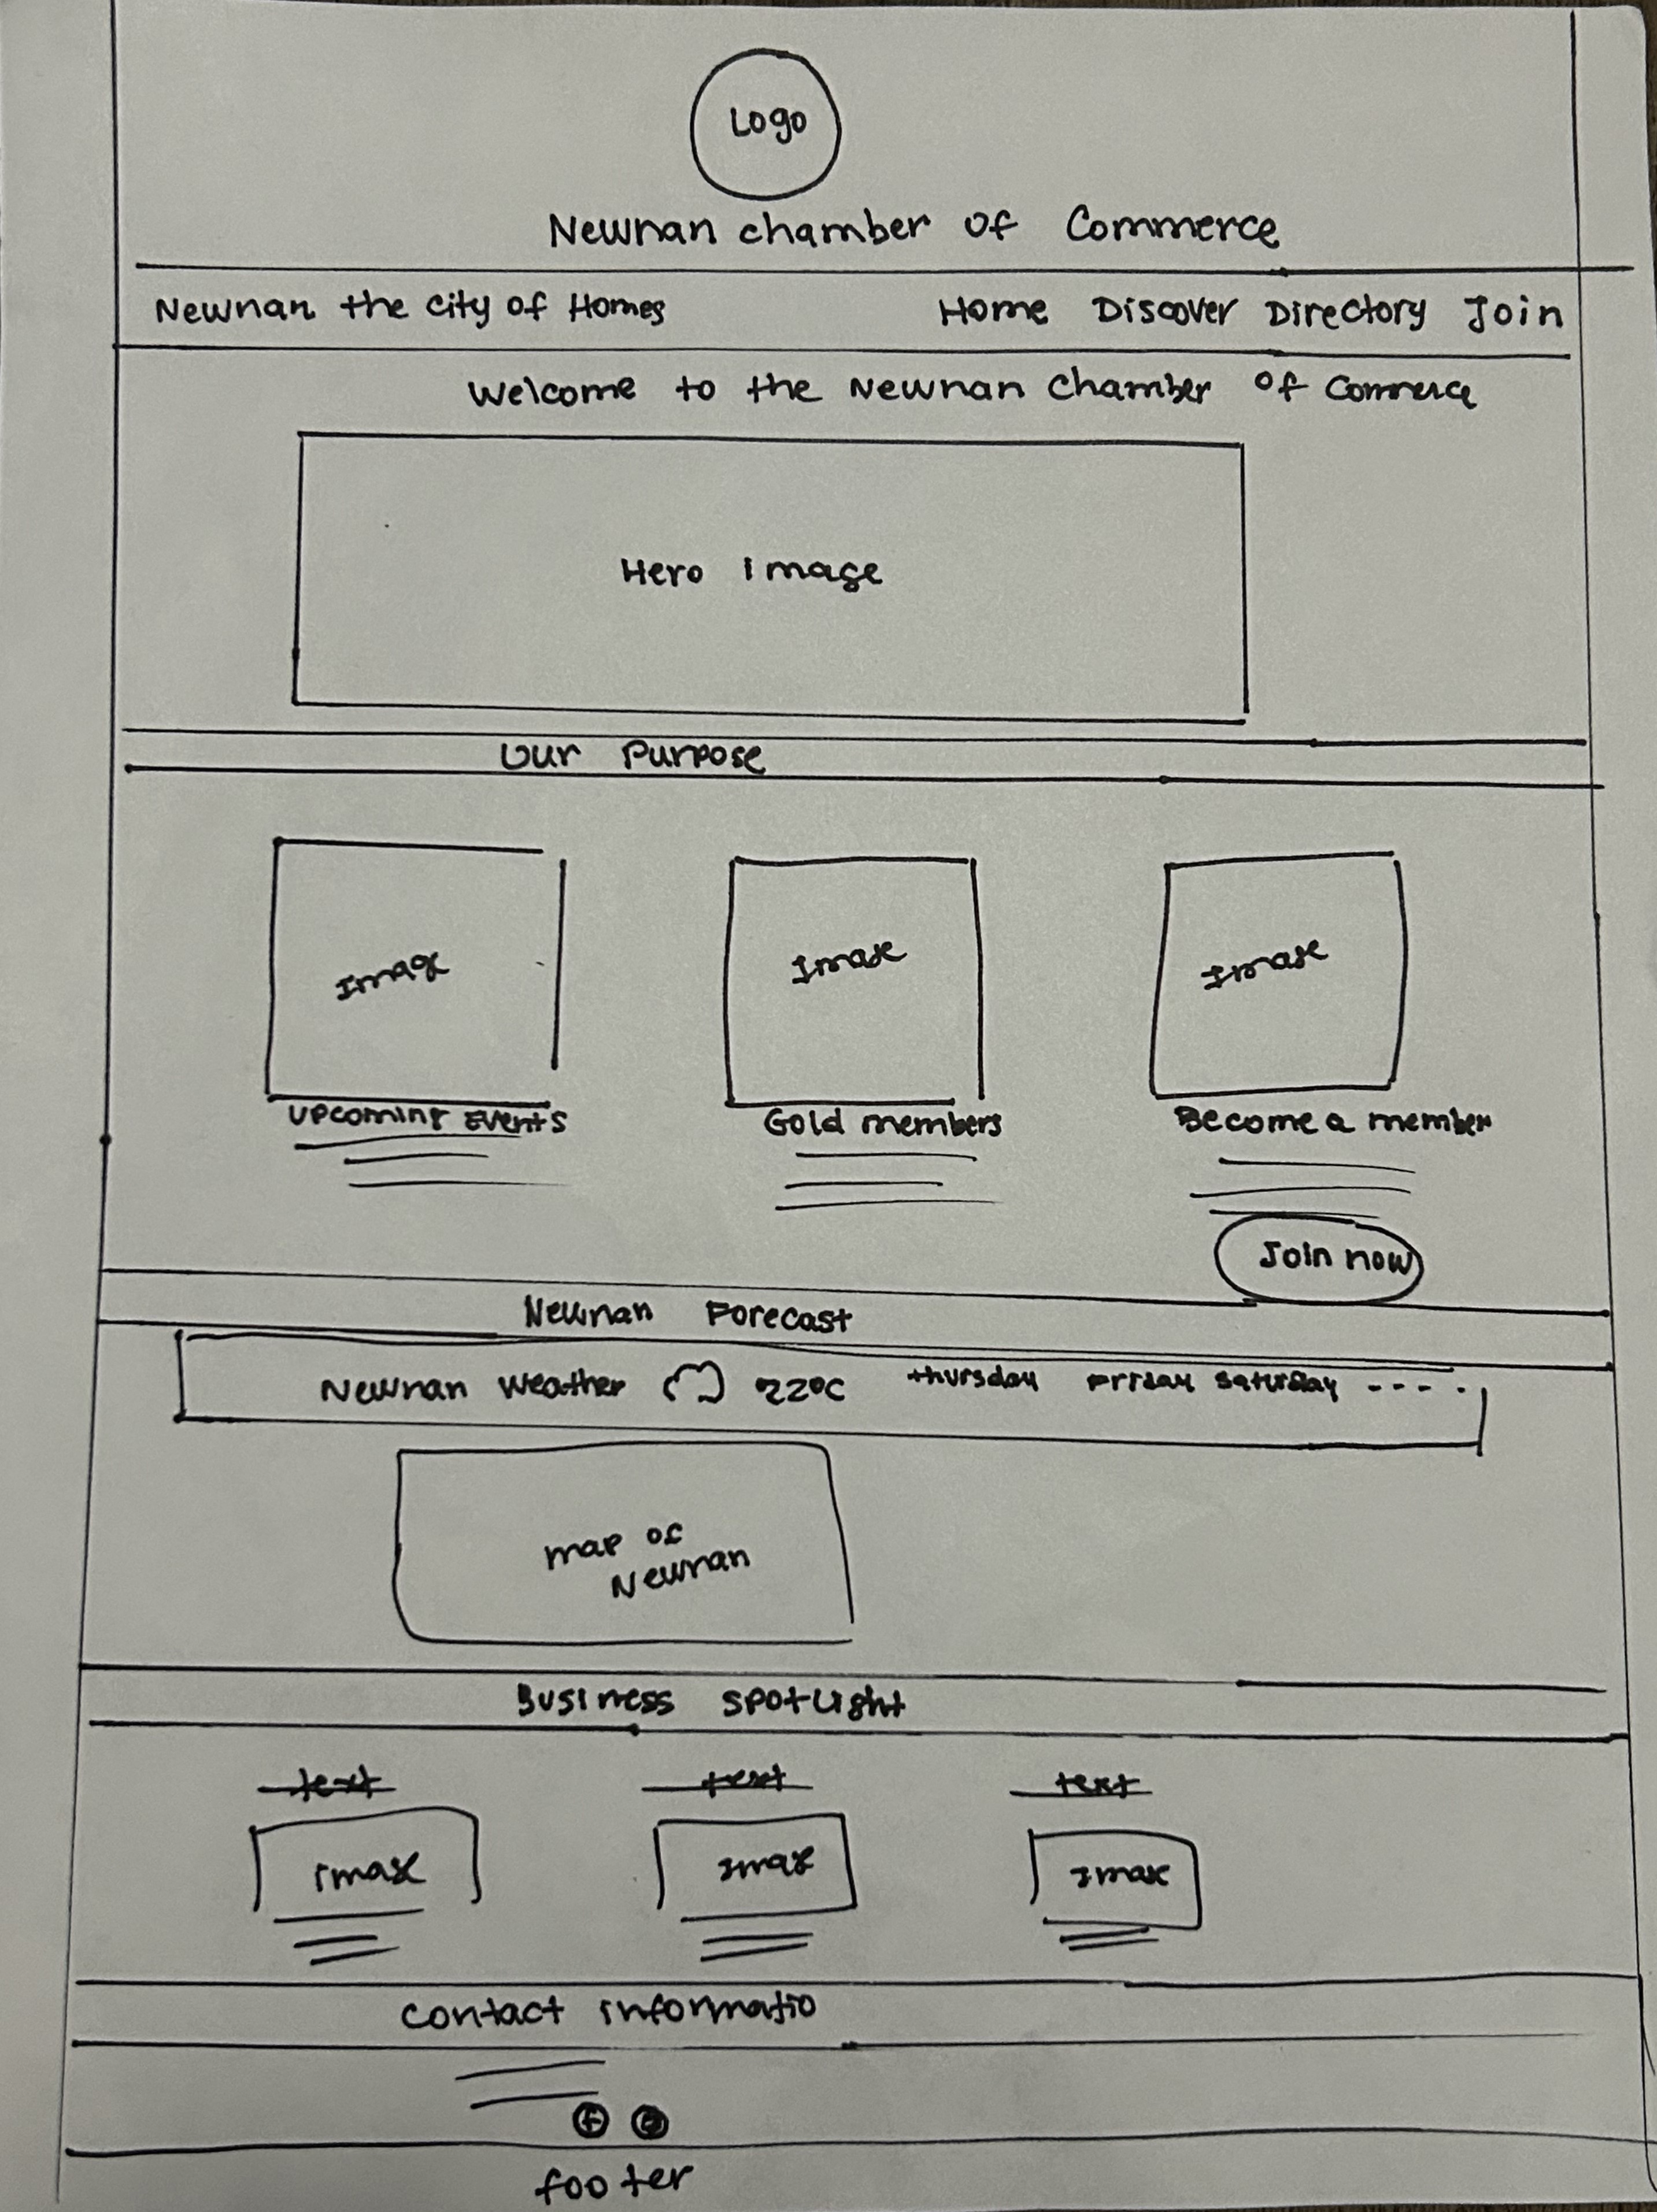 Logo
Newnan chamber of Commerce
Newnan the city of Homes Home Discover Directory Join
Welcome to the Newnan Chamber of Commerce
Hero Image
Our Purpose
Image Image Image
Upcoming Events Gold members Become a member
Join now
Newnan Forecast
Newnan Weather 22°C thursday Friday Saturday ----
map of
Newnan
Business Spotlight
text text text
Image Image Image
Contact informatio
f
footer